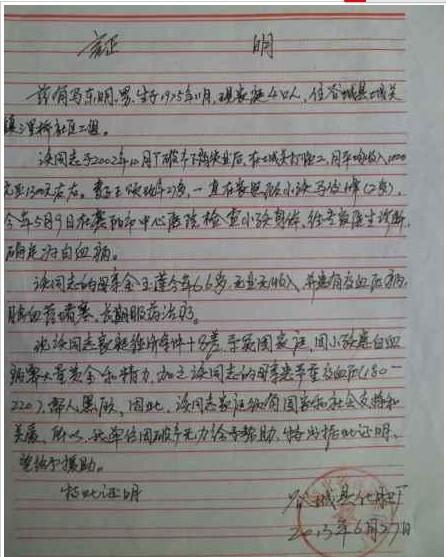 证 明
兹有马东明,男,生于1975年11月,现家庭4口人,住谷城县城关
镇 桥社区二组。
该同志于2002年10月下破产下岗失业后,在城关打零工,月平均收入1000
元至1300元左右。妻子 今年27岁,一直在家照顾小孩马 (2岁),
今年5月9日在襄阳市中心医院检查小孩身体,经专家医生诊断,
确定为白血病。
该同志的母亲金玉莲今年66岁,无业无收入,并患有高血压病,
脑血管堵塞,长期服药治疗。
说该同志家庭经济条件十分差,等于困难家庭,因小孩患白血
病需大量资金和精力,加之该同志的母亲患严重高血压(180-
220),帮人照顾,因此,该同志家庭须有国家和社会支持和
关爱,所以,我单位因破产无力给予帮助,特出据此证明,
望给予援助。
特此证明
谷城县化肥厂
2013年6月27日